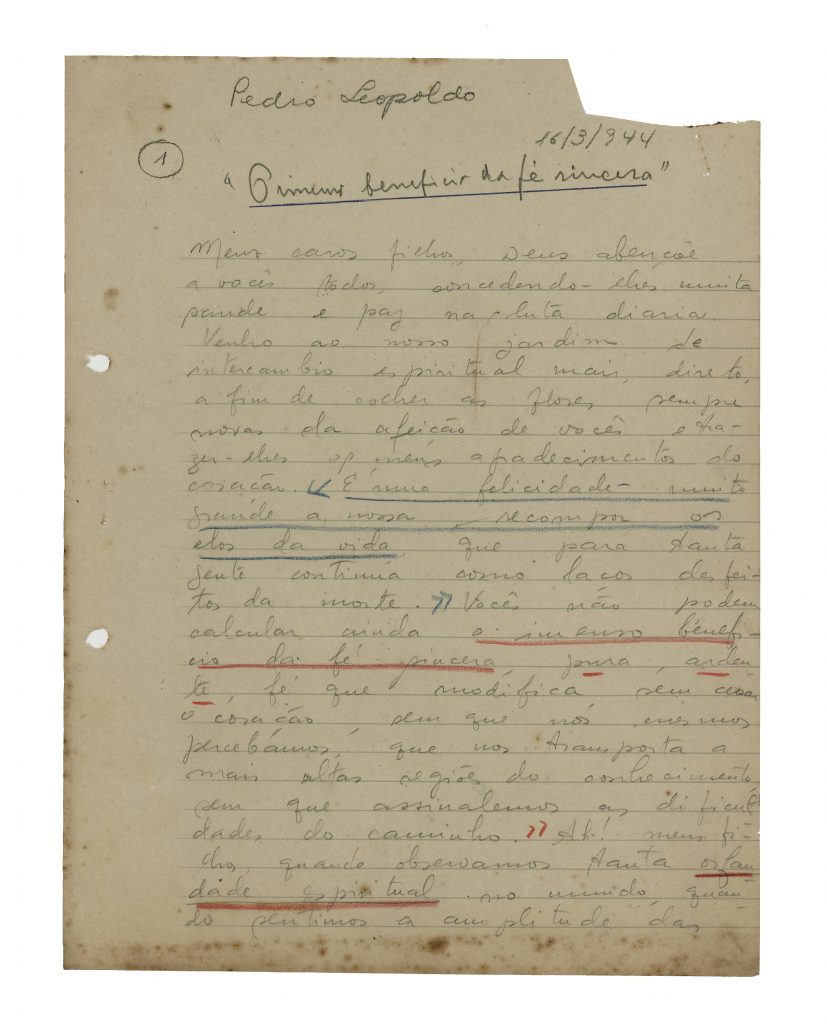 Pedro Leopoldo
16/3/944
1
" benefício da fé sincera"
Meus caros filhos, Deus abençôe
a vocês todos, concedendo-lhes muita
saude e paz na luta diaria.
Venho ao nosso jardim de
intercambio espiritual mais, direto,
a fim de colher as flores sempre
novas da afeição de vocês e tra-
zer-lhes os meus agradecimentos do
coração. É uma felicidade muito
grande a nossa recompor os
elos da vida, que para tanta
gente continúa como laços desfei-
tos da morte. Vocês não podem
calcular ainda o imenso benefi-
cio da fé sincera, pura, arden-
te, fé que modifica sem cessar
o coração, sem que nós mesmos
percebâmos, que nos transporta a
mais altas regiões do conhecimento
sem que assinalemos as dificul-
dades do caminho. Ah! meus fi-
lhos, quando observamos tanta orfan-
dade espiritual no mundo, quan-
do sentimos a amplitude das